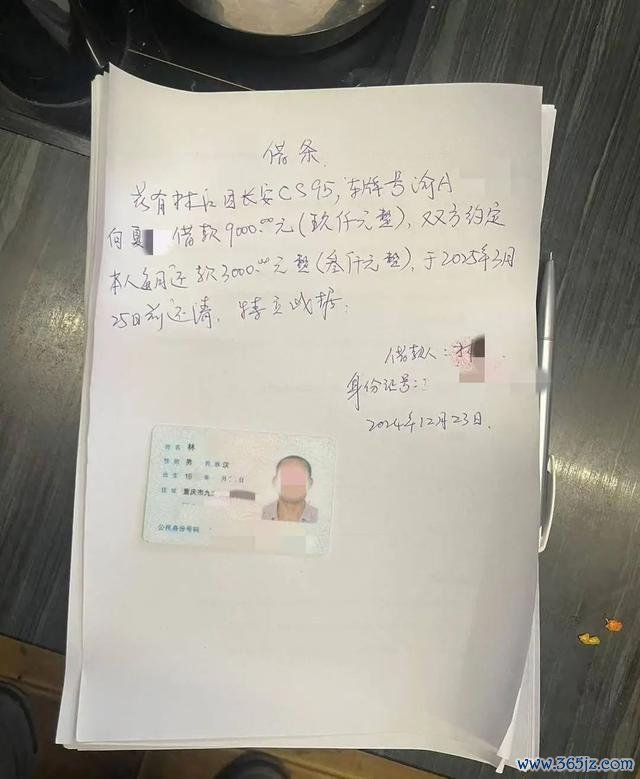 借条
兹有林江因长安CS95,车牌号渝A
向夏 借款9000.00元(玖仟元整),双方约定
本人每月还款3000.00元整(叁仟元整),于2025年3月
25日前还清,特立此据.
借款人:林
身份证号:
2024年12月23日.
姓名 林
性别 男 民族 汉
出生 19 年 月 日
住址 重庆市九
公民身份号码
www.365jz.com